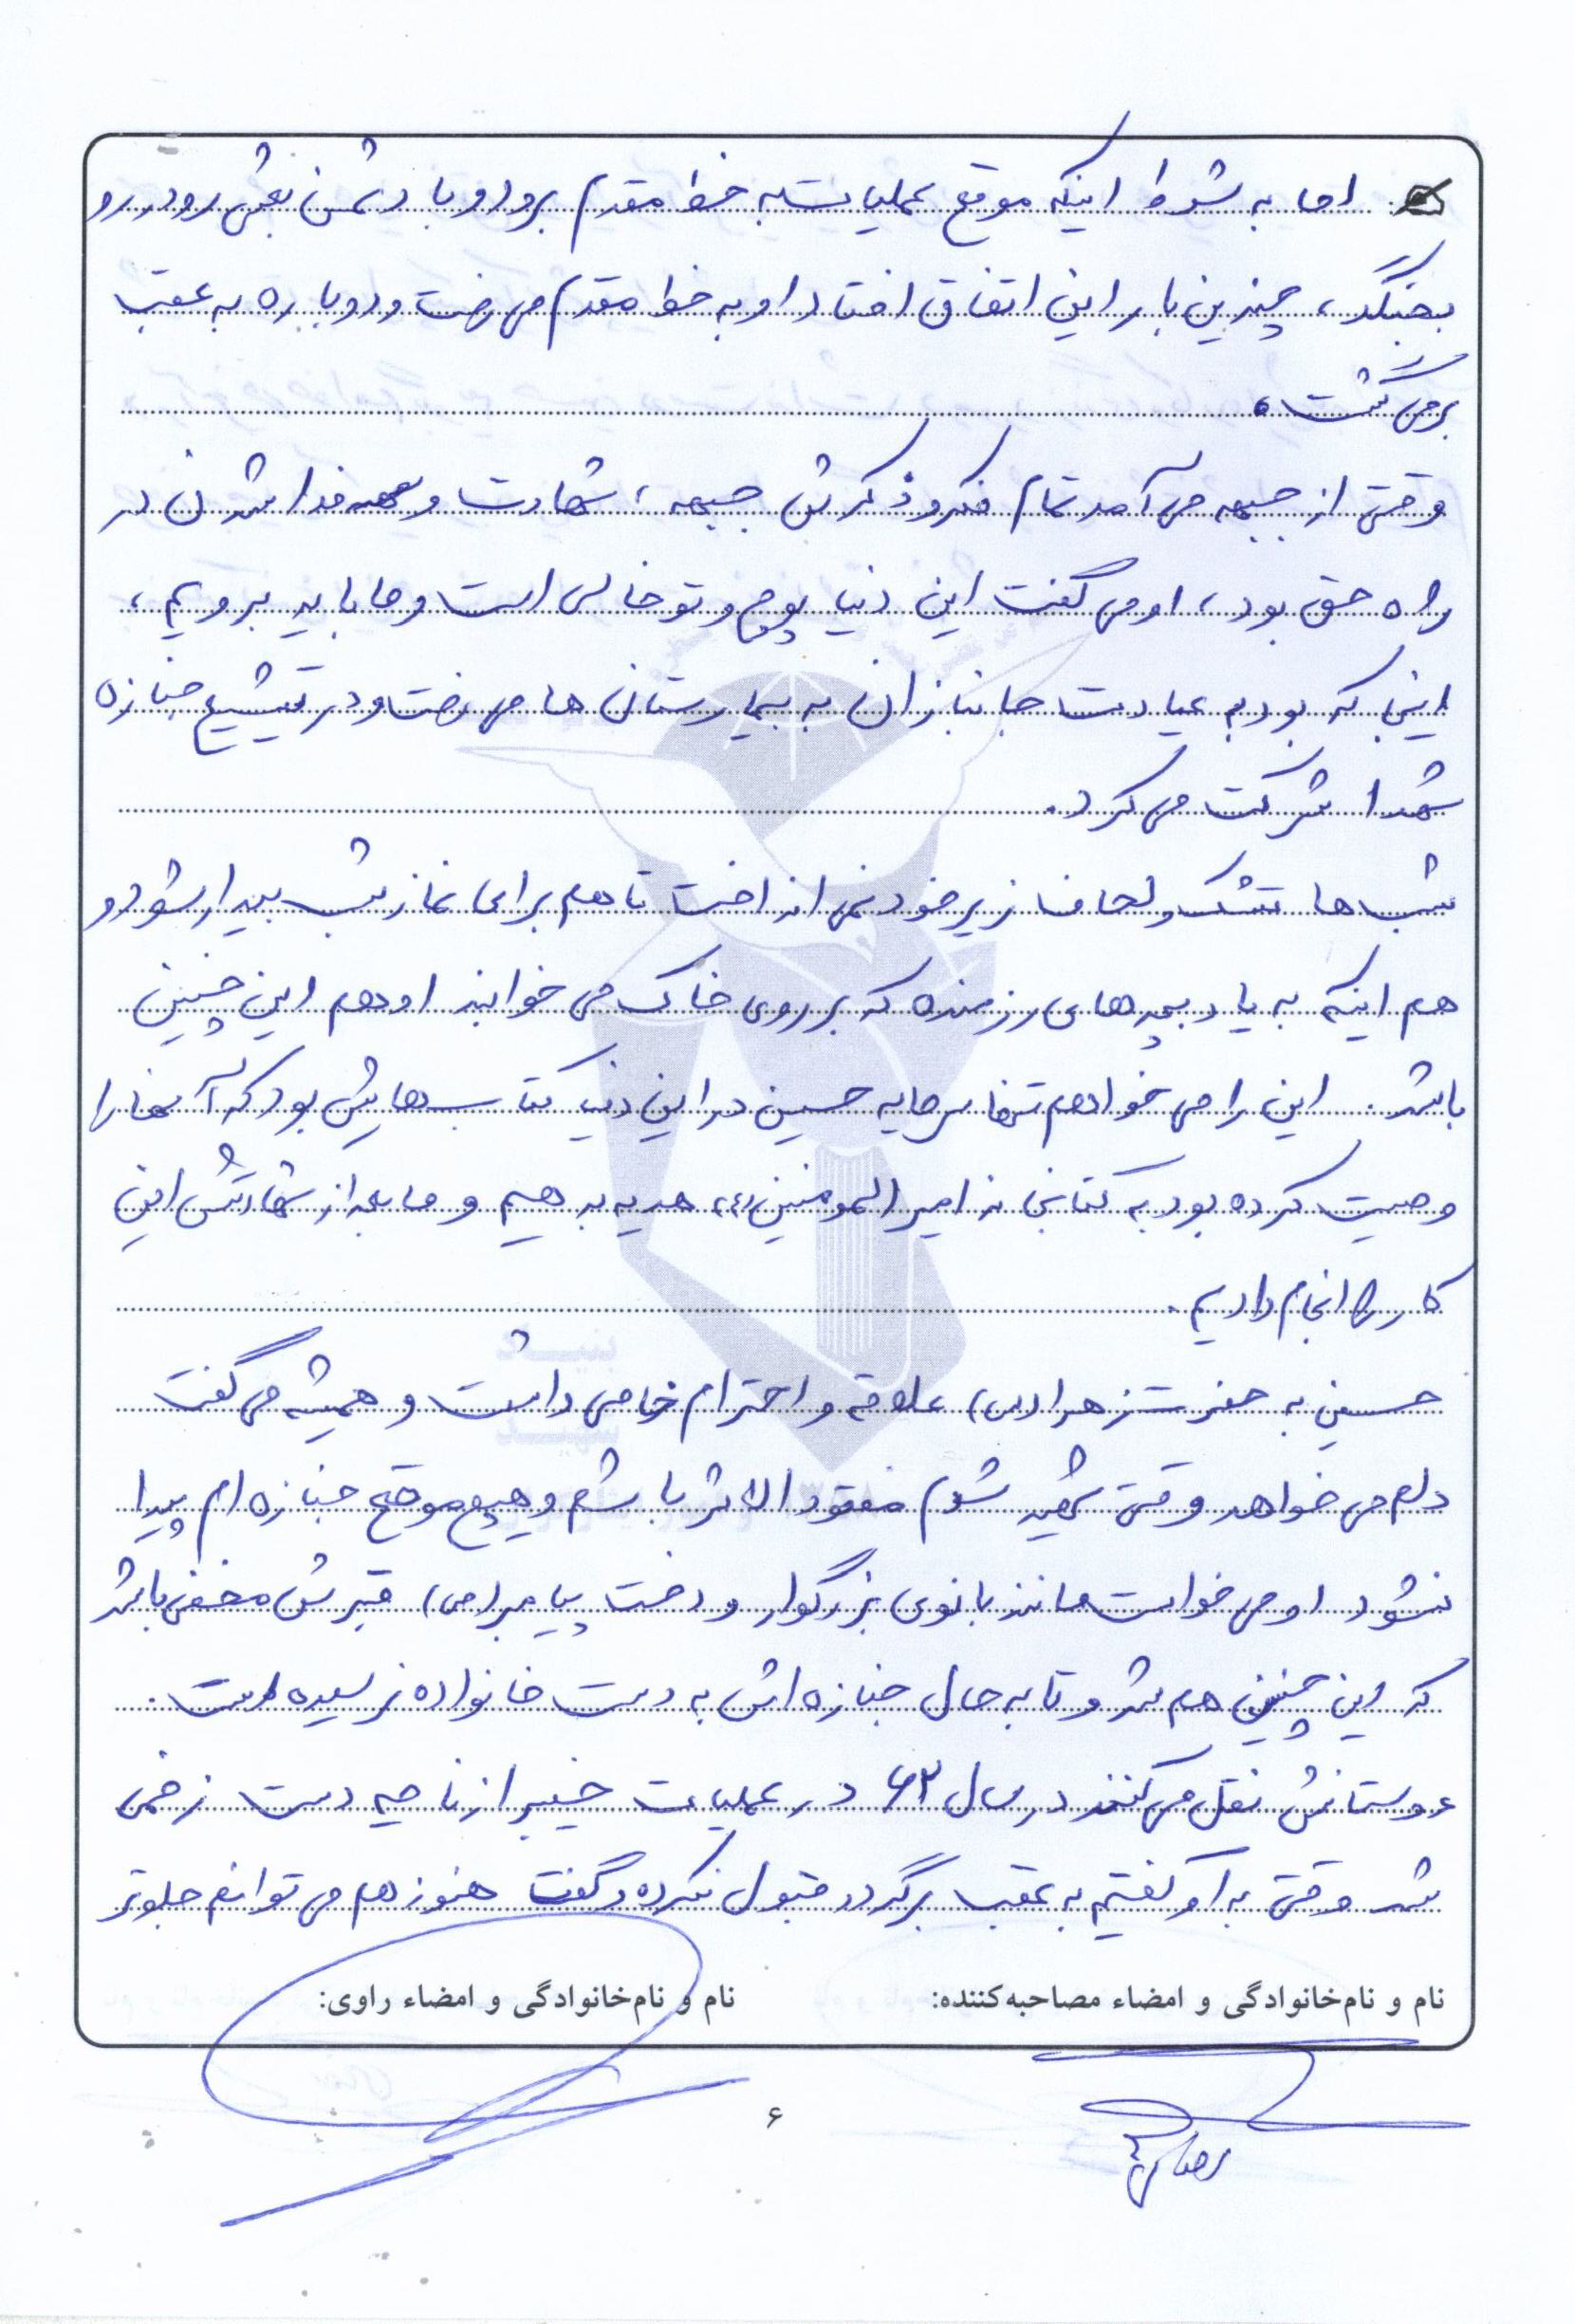 اما به شرط اینکه موقع عملیات به خط مقدم برود و با دشمن بعثی رودررو
بجنگد، چندین بار این اتفاق افتاد او به خط مقدم می رفت و دوباره به عقب
برمی گشت.
وقتی از جبهه می آمد تمام فکر و ذکرش جبهه، شهادت و فدا شدن در
راه حق بود، او می گفت این دنیا پوچ و تو خالی است و ما باید برویم،
اینجا که بود به عیادت جانبازان به بیمارستان ها می رفت و در تشییع جنازه
شهدا شرکت می کرد.
شب ها تشک و لحاف زیر خود نمی انداخت تا هم برای نماز شب بیدار شود و
هم اینکه به یاد بچه های رزمنده که بر روی خاک می خوابند او هم این چنین
باشد. این را می خواهم تنها سرمایه حسین در این دنیا کتاب هایش بود که آنها را
وصیت کرده بود به کتابخانه امیرالمومنین (ع) هدیه بدهیم و ما بعد از شهادتش این
کار را انجام دادیم.
حسین به حضرت زهرا (س) علاقه و احترام خاصی داشت و همیشه می گفت
دلم می خواهد وقتی شهید شدم مفقود الاثر باشم و هیچ موقع جنازه ام پیدا
نشود او می خواست مانند بانوی بزرگوار و دخت پیامبر (ص) قبرش مخفی باشد
که این چنین هم شد و تا به حال جنازه اش به دست خانواده نرسیده است.
دوستانش نقل می کنند در سال ۶۲ در عملیات خیبر از ناحیه دست زخمی
شد وقتی به او گفتیم به عقب برگردد قبول نکرده و گفت هنوز هم می توانم جلوتر
نام و نام‌خانوادگی و امضاء مصاحبه‌کننده: نام و نام‌خانوادگی و امضاء راوی:
۶